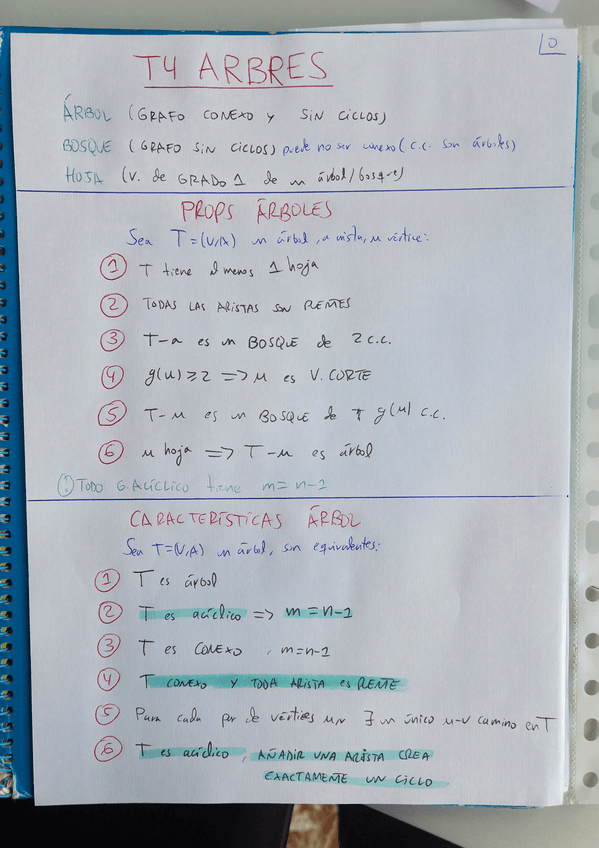 0
T4 ARBRES
ÁRBOL (GRAFO CONEXO Y SIN CICLOS)
BOSQUE (GRAFO SIN CICLOS) puede no ser conexo (c.c. son árboles)
HOJA (V. de GRADO 1 de un árbol/bosque)
PROPS ÁRBOLES
Sea T=(V,A) un árbol, a arista, u vértice:
1 T tiene al menos 1 hoja
2 TODAS LAS ARISTAS SON PUENTES
3 T-a es un BOSQUE de 2 c.c.
4 g(u) ≥ 2 => u es V. CORTE
5 T-u es un BOSQUE de g(u) c.c.
6 u hoja => T-u es árbol
! TODO G. ACÍCLICO tiene m = n-1
CARACTERÍSTICAS ÁRBOL
Sea T=(V,A) un árbol, son equivalentes:
1 T es árbol
2 T es acíclico => m = n-1
3 T es CONEXO, m=n-1
4 T CONEXO Y TODA ARISTA es PUENTE
5 Para cada par de vértices u,v ∃ un único u-v camino en T
6 T es acíclico, AÑADIR UNA ARISTA CREA
EXACTAMENTE UN CICLO